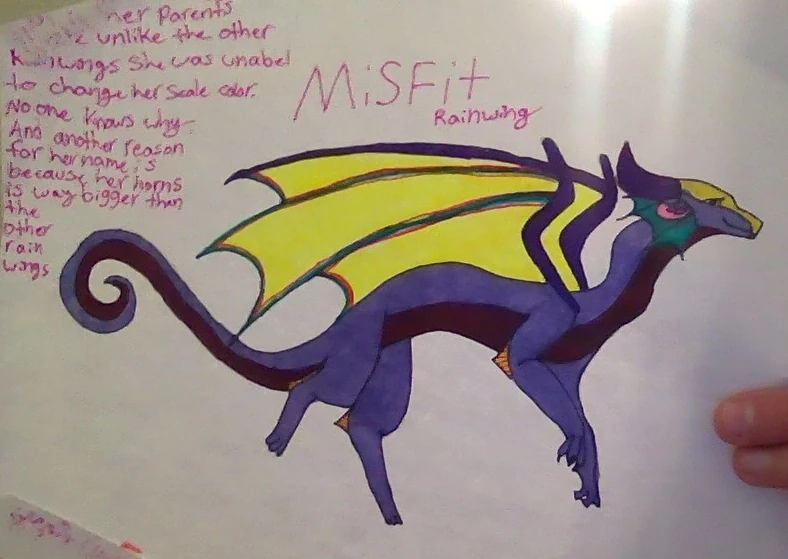 her Parents
unlike the other
she was unabel
to change her scale color.
No one knows why.
And another reason
for her name is
because her horns
is way bigger than
the
other
rain
wings
MiSFit
Rainwing